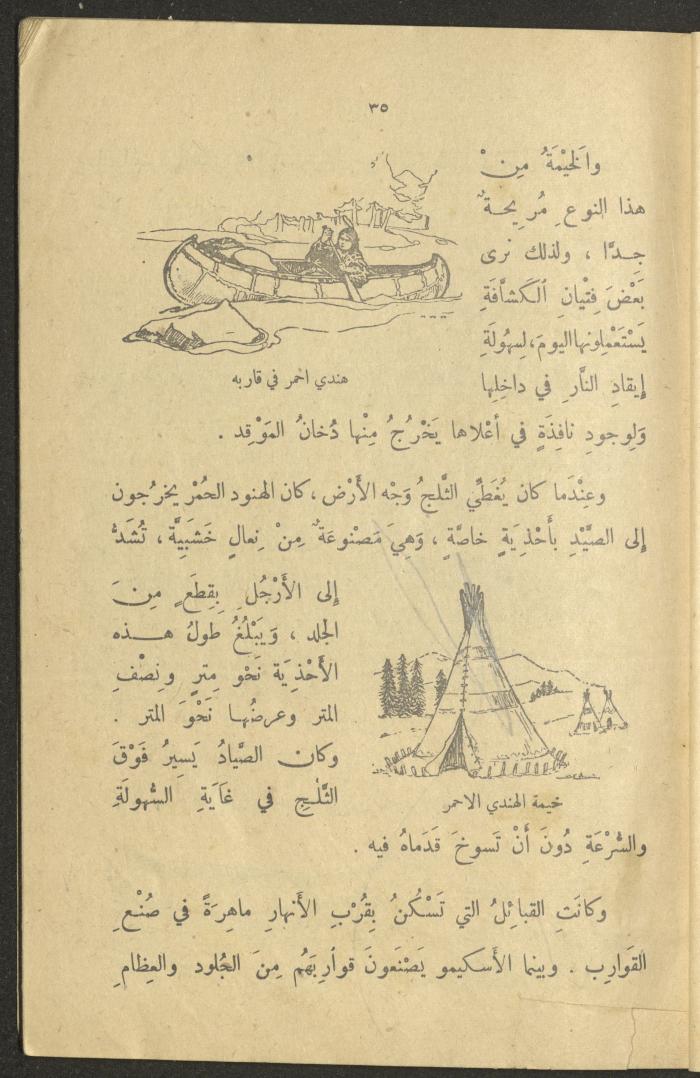 ٣٥
والخَيْمَةُ مِنْ
هذا النوعِ مُريحةٌ
جِدًّا ، ولذلك نرى
بَعْضَ فِتْيانِ الكَشّافَةِ
يَسْتَعْمِلونها اليومَ، لِسهُولَةِ
إيقادِ النَّارِ في داخِلِها
هندي احمر في قاربه
وَلِوجودِ نافِذَةٍ في أعْلاها يَخْرُجُ مِنْها دُخانُ المَوْقِد .
وعِنْدَما كان يُغَطِّي الثَّلجُ وَجْه الأَرْض ، كان الهنود الحُمْر يخرُجون
إلى الصَّيْدِ بأَحْذِيَةٍ خاصَّةٍ ، وَهِيَ مَصْنوعَةٌ مِنْ نِعالٍ خَشَبِيَّة ، تُشَدُّ
إلى الأَرْجُلِ بِقِطَعٍ مِنَ
الجلد ، وَيَبْلُغُ طولُ هـذه
الأَحْذِيَة نَحْو مِترٍ ونِصْفِ
المتر وعرضُها نَحْوَ المتر .
وكان الصَّيادُ يَسِيرُ فَوْقَ
الثَّلْجِ في غَايَةِ السُّهولَةِ
خيمة الهندي الاحمر
والسُّرْعَةِ دُونَ أَنْ تَسوخَ قَدَماهُ فيه .
وكانَتِ القبائِلُ التي تَسْكُنُ بِقُرْبِ الأَنهارِ ماهِرَةً في صُنْعِ
القَوارِب . وبينما الأَسكيمو يَصْنَعونَ قوارِبَهُم مِنَ الجُلود والعِظامِ